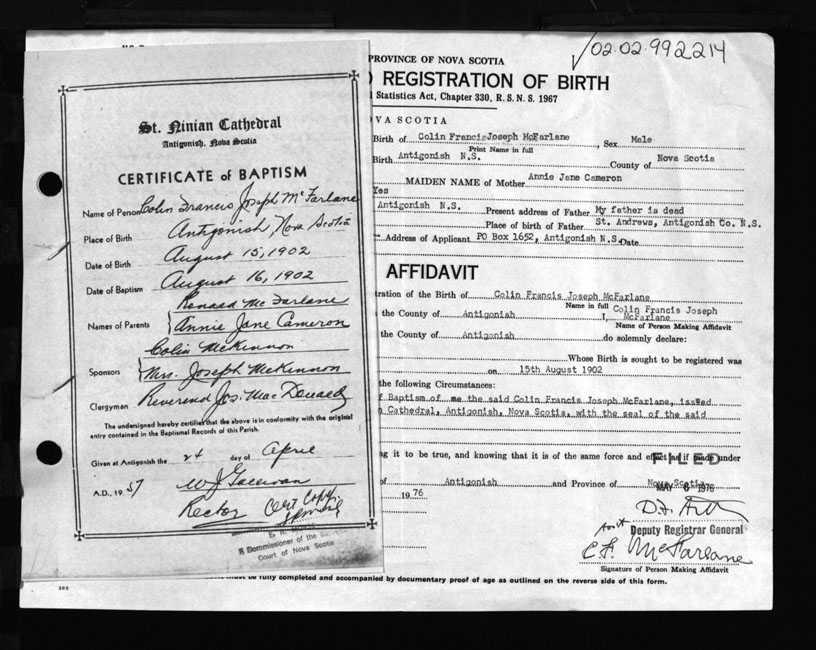 02.02.992214
PROVINCE OF NOVA SCOTIA
REGISTRATION OF BIRTH
Statistics Act, Chapter 330, R.S.N.S. 1967
St. Ninian Cathedral
Antigonish, Nova Scotia
CERTIFICATE of BAPTISM
Name of Person Colin Francis Joseph McFarlane
Place of Birth Antigonish, Nova Scotia
Date of Birth August 15, 1902
Date of Baptism August 16, 1902
Ronald McFarlane
Names of Parents Annie Jane Cameron
Colin McKinnon
Sponsors Mrs. Joseph McKinnon
Clergyman Reverend Jos. MacDonald
The undersigned hereby certifies that the above is in conformity with the original
entry contained in the Baptismal Records of this Parish.
Given at Antigonish the 24 day of April
A.D., 1957
Rector Cert Copy
Commissioner of the
Court of Nova Scotia
VA SCOTIA
Birth of Colin Francis Joseph McFarlane Sex Male
Print Name in full
Birth Antigonish N.S. County of Nova Scotia
MAIDEN NAME of Mother Annie Jane Cameron
Yes
Antigonish N.S. Present address of Father My father is dead
Place of birth of Father St. Andrews, Antigonish Co. N.S.
Address of Applicant PO Box 1652, Antigonish N.S. Date
AFFIDAVIT
tration of the Birth of Colin Francis Joseph McFarlane
Name in full
the County of Antigonish I, Colin Francis Joseph McFarlane
Name of Person Making Affidavit
the County of Antigonish do solemnly declare:
Whose Birth is sought to be registered was
on 15th August 1902
the following Circumstances:
f Baptism of me the said Colin Francis Joseph McFarlane, issued
n Cathedral, Antigonish, Nova Scotia, with the seal of the said
ng it to be true, and knowing that it is of the same force and effect as if made under
FILED
of Antigonish and Province of Nova Scotia
MAY 6 1976
1976
Deputy Registrar General
C.F. McFarlane
Signature of Person Making Affidavit
must be fully completed and accompanied by documentary proof of age as outlined on the reverse side of this form.